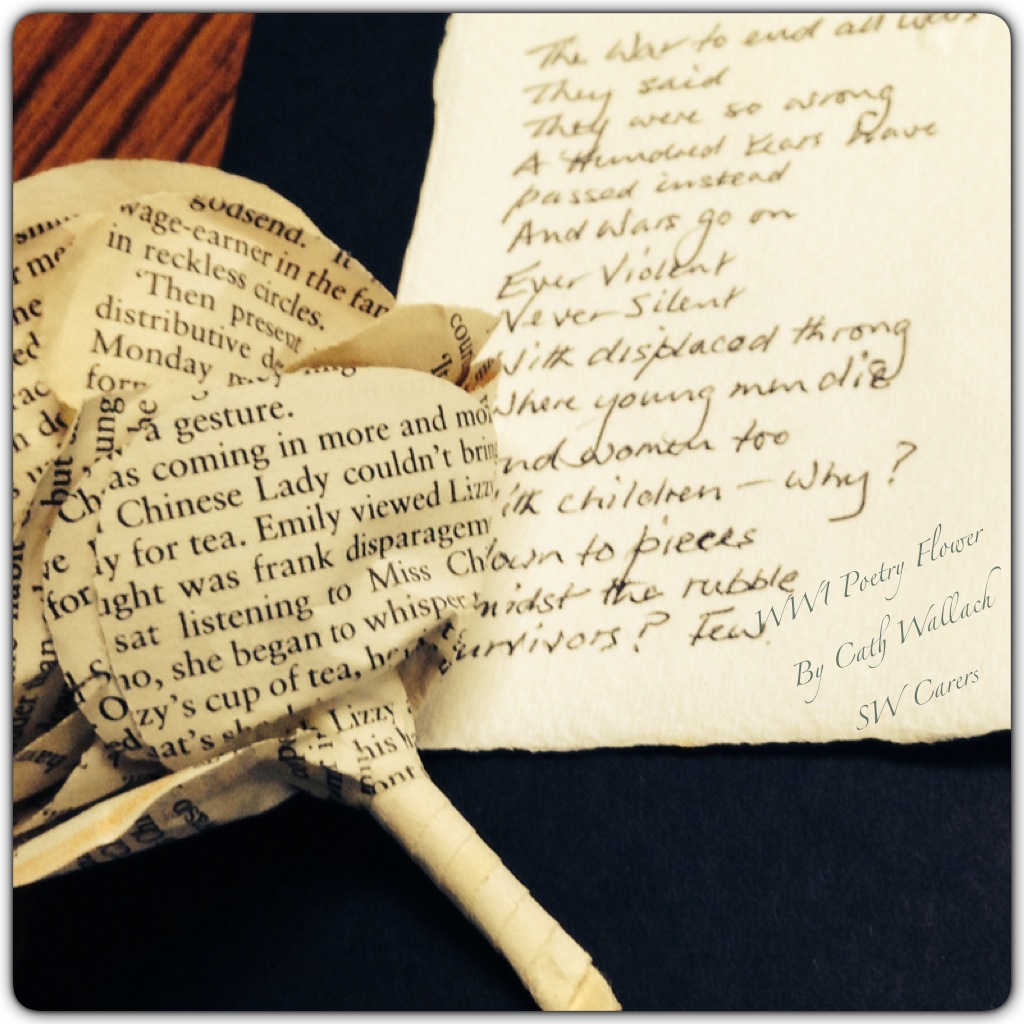 The War to end all wars
They said
They were so wrong
A Hundred Years have
passed instead
And Wars go on
Ever Violent
Never Silent
With displaced throng
Where young men die
nd women too
ith children - why?
own to pieces
midst the rubble
urvivors? Few.
WW1 Poetry Flower
By Cath Wallach
SW Carers
godsend.
wage-earner in the far
in reckless circles.
'Then present
distributive
Monday
a gesture.
as coming in more and mo
Chinese Lady couldn't brin
y for tea. Emily viewed Lizzy
ught was frank disparagem
sat listening to Miss Ch
no, she began to whisper
zy's cup of tea, he
at's
Lizzy
his
ont
but
for